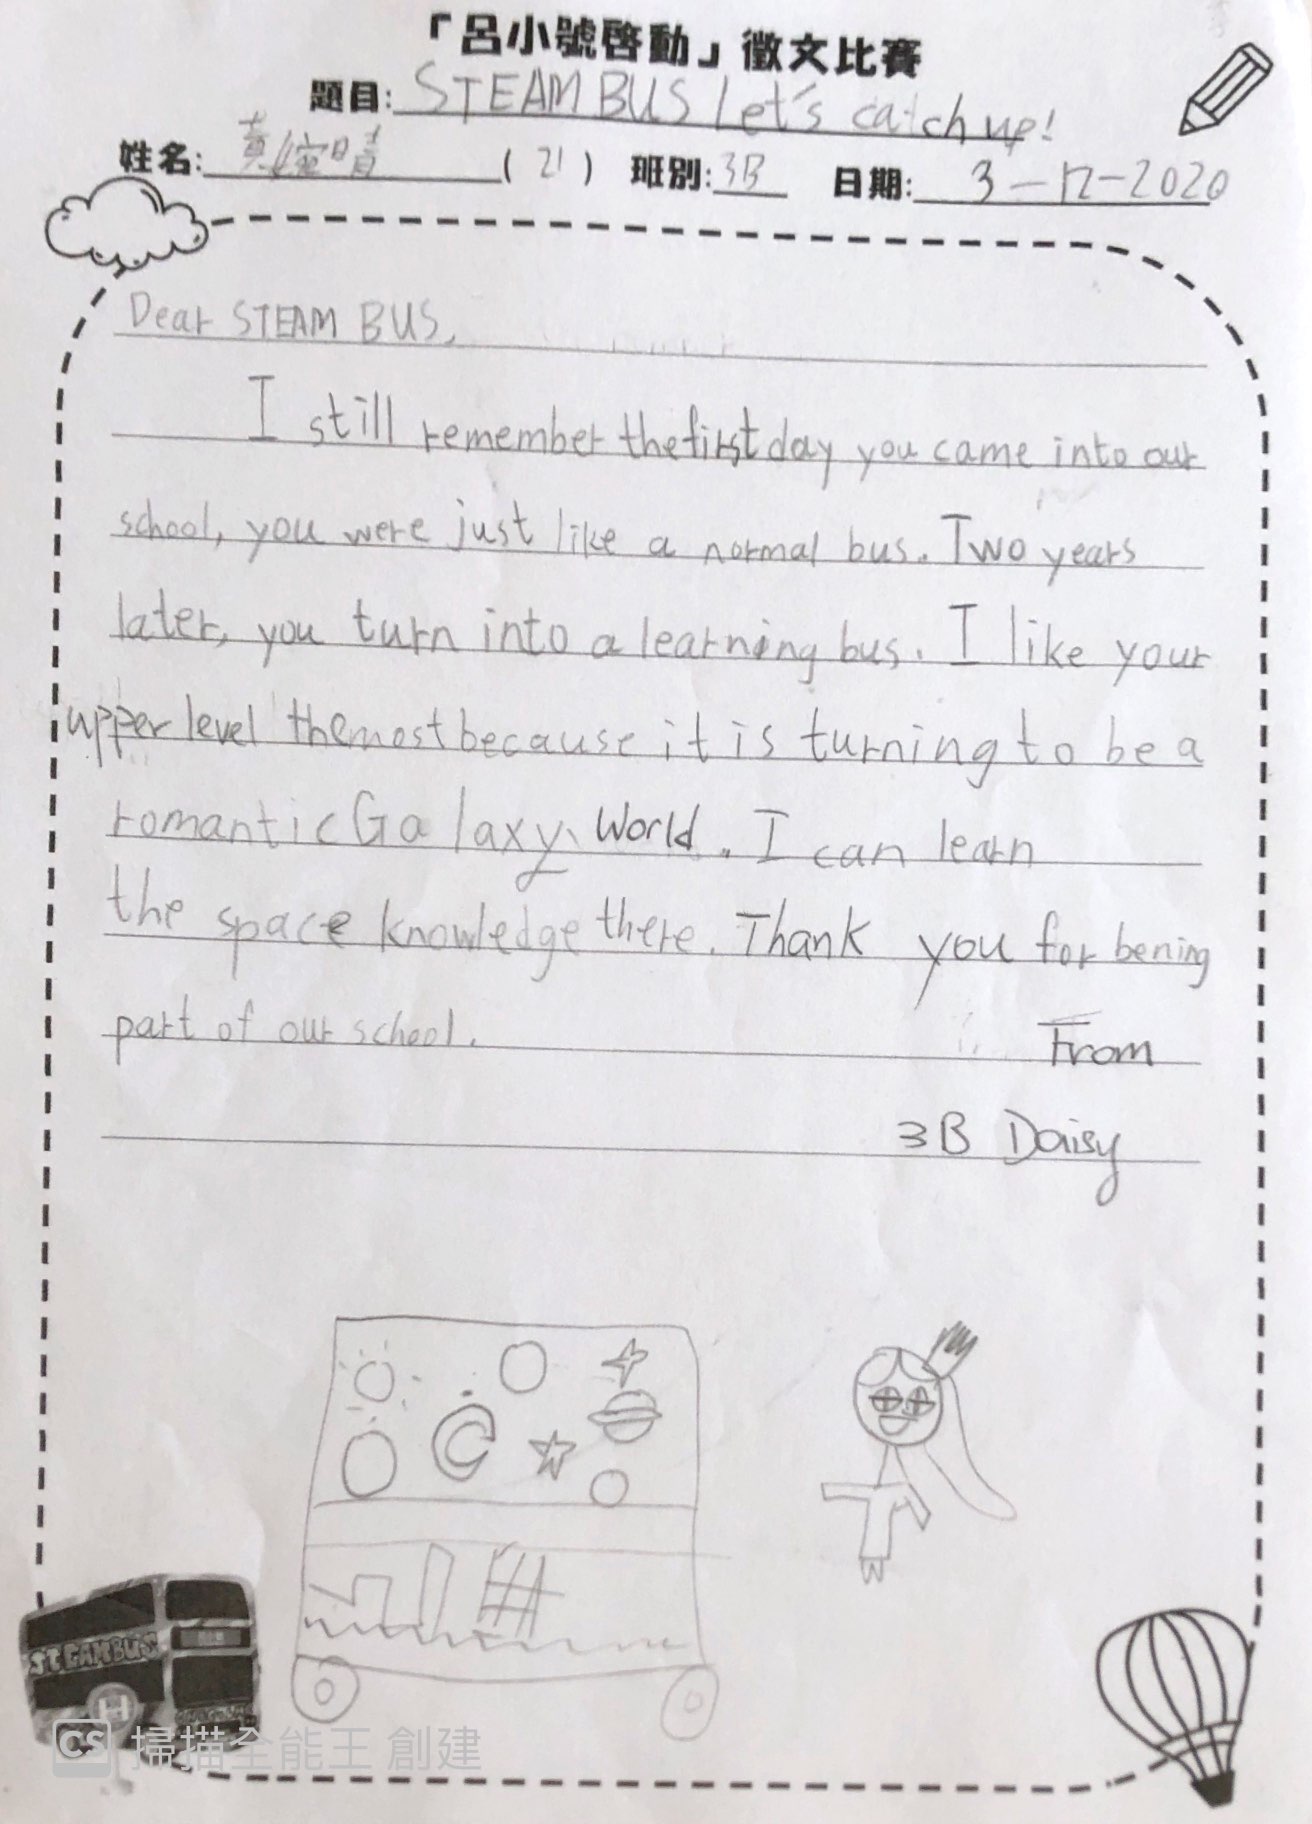 「呂小號啓動」徵文比賽
題目: STEAM BUS Let's catch up!
姓名: 黃 晴 ( 21 ) 班別: 3B 日期: 3-12-2020
Dear STEAM BUS,
I still remember the first day you came into our
school, you were just like a normal bus. Two years
later, you turn into a learning bus. I like your
upper level the most because it is turning to be a
romantic Galaxy World. I can learn
the space knowledge there. Thank you for bening
part of our school.
From
3B Daisy
STEAMBUS
CS 掃描全能王 創建